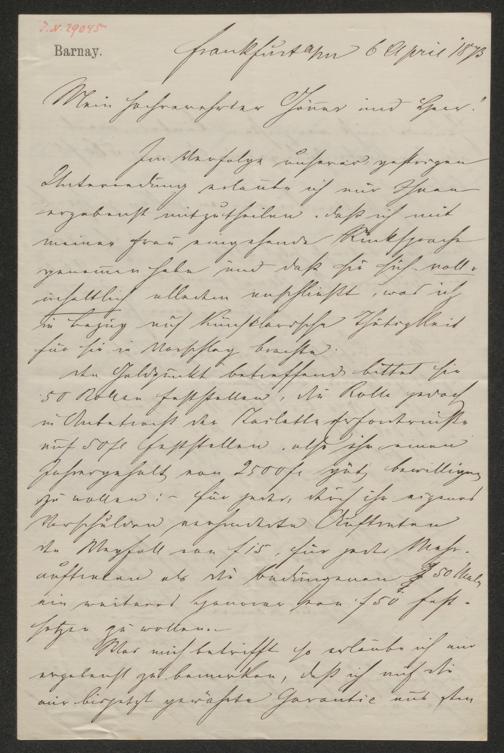 J.N. 29045
Barnay.
Frankfurt a/m 6 April 1873
Mein hochverehrter Gönner und Herr!
Im Verfolge unserer gestrigen
Unterredung erlaube ich mir Ihnen
ergebenst mitzutheilen, daß ich mit
meiner Frau eingehende Rücksprache
genommen habe und daß sie sich voll-
inhaltlich alledem anschließt, was ich
in Bezug auf künstlerische Thätigkeit
für sie in Vorschlag brachte.
Den Geldpunkt betreffend bittet sie
50 Rollen feststellen, die Rolle jedoch
in Anbetracht der Toilette Erfordernisse
auf 50 fl feststellen, also ihr einen
Jahresgehalt von 2500 fl gütigst bewilligen
zu wollen: – für jedes, durch ihr eigenes
Verschulden verhinderte Auftreten
den Wegfall von f 15, für jedes Mehr-
auftreten als die bedungenen 50 Male
ein weiteres Honorar von f 50 fest-
setzen zu wollen. –
Was mich betrifft so erlaube ich mir
ergebenst zu bemerken, daß ich auf die
mir bisjetzt gewährte Garantie aus den